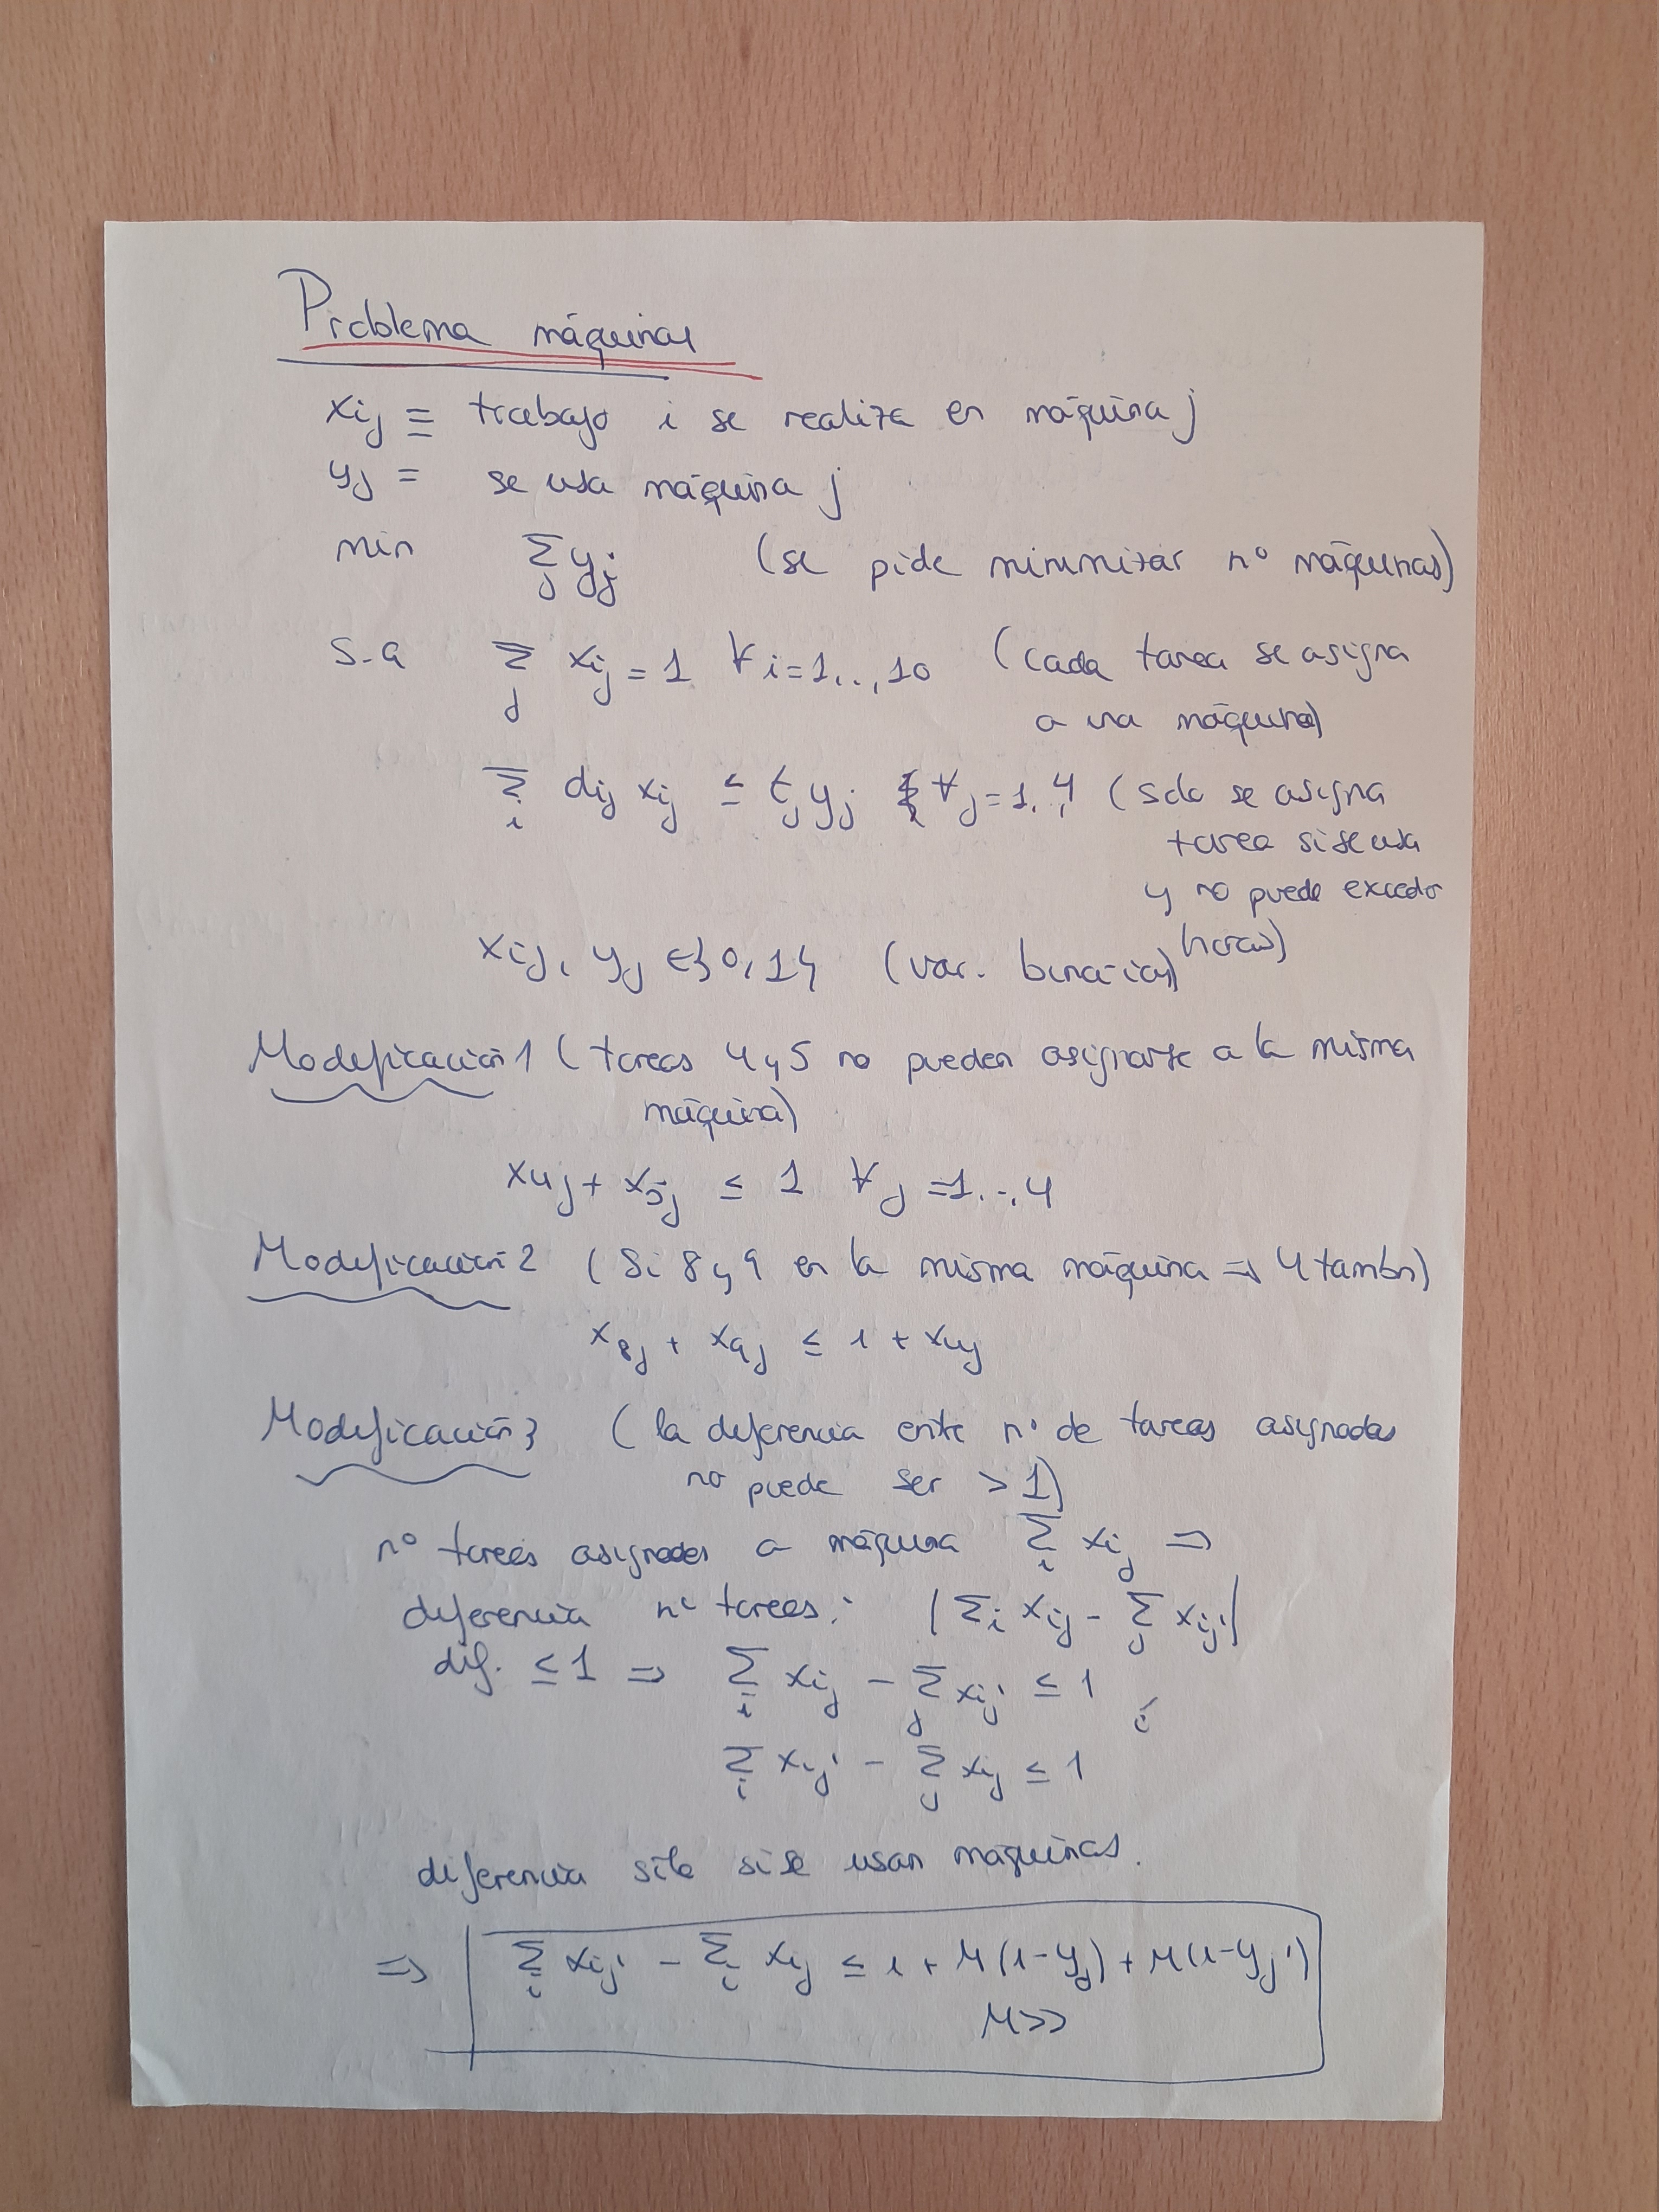 Problema máquinas
xij ≡ trabajo i se realiza en máquina j
yj = se usa máquina j
min ∑j yj (se pide minimizar nº máquinas)
s.a ∑j xij = 1 ∀i=1,..,10 (cada tarea se asigna
a una máquina)
∑i dij xij ≤ tj yj ∀j=1,.,4 (solo se asigna
tarea si se usa
y no puede exceder
horas)
xij, yj ∈ {0,1} (var. binarias)
Modificación 1 (tareas 4 y 5 no pueden asignarse a la misma
máquina)
x4j + x5j ≤ 1 ∀j=1..,4
Modificación 2 (Si 8 y 9 en la misma máquina ⇒ 4 tambn)
x8j + x9j ≤ 1 + x4j
Modificación 3 (la diferencia entre nº de tareas asignadas
no puede ser > 1)
nº tareas asignadas a máquina ∑i xij ⇒
diferencia nº tareas: |∑i xij - ∑j xij'|
dif. ≤ 1 ⇒ ∑i xij - ∑j xij' ≤ 1 ;
∑i xij' - ∑j xij ≤ 1
diferencia sólo si se usan máquinas.
⇒ ∑i xij' - ∑i xij ≤ 1 + M(1-yj) + M(1-yj')
M>>